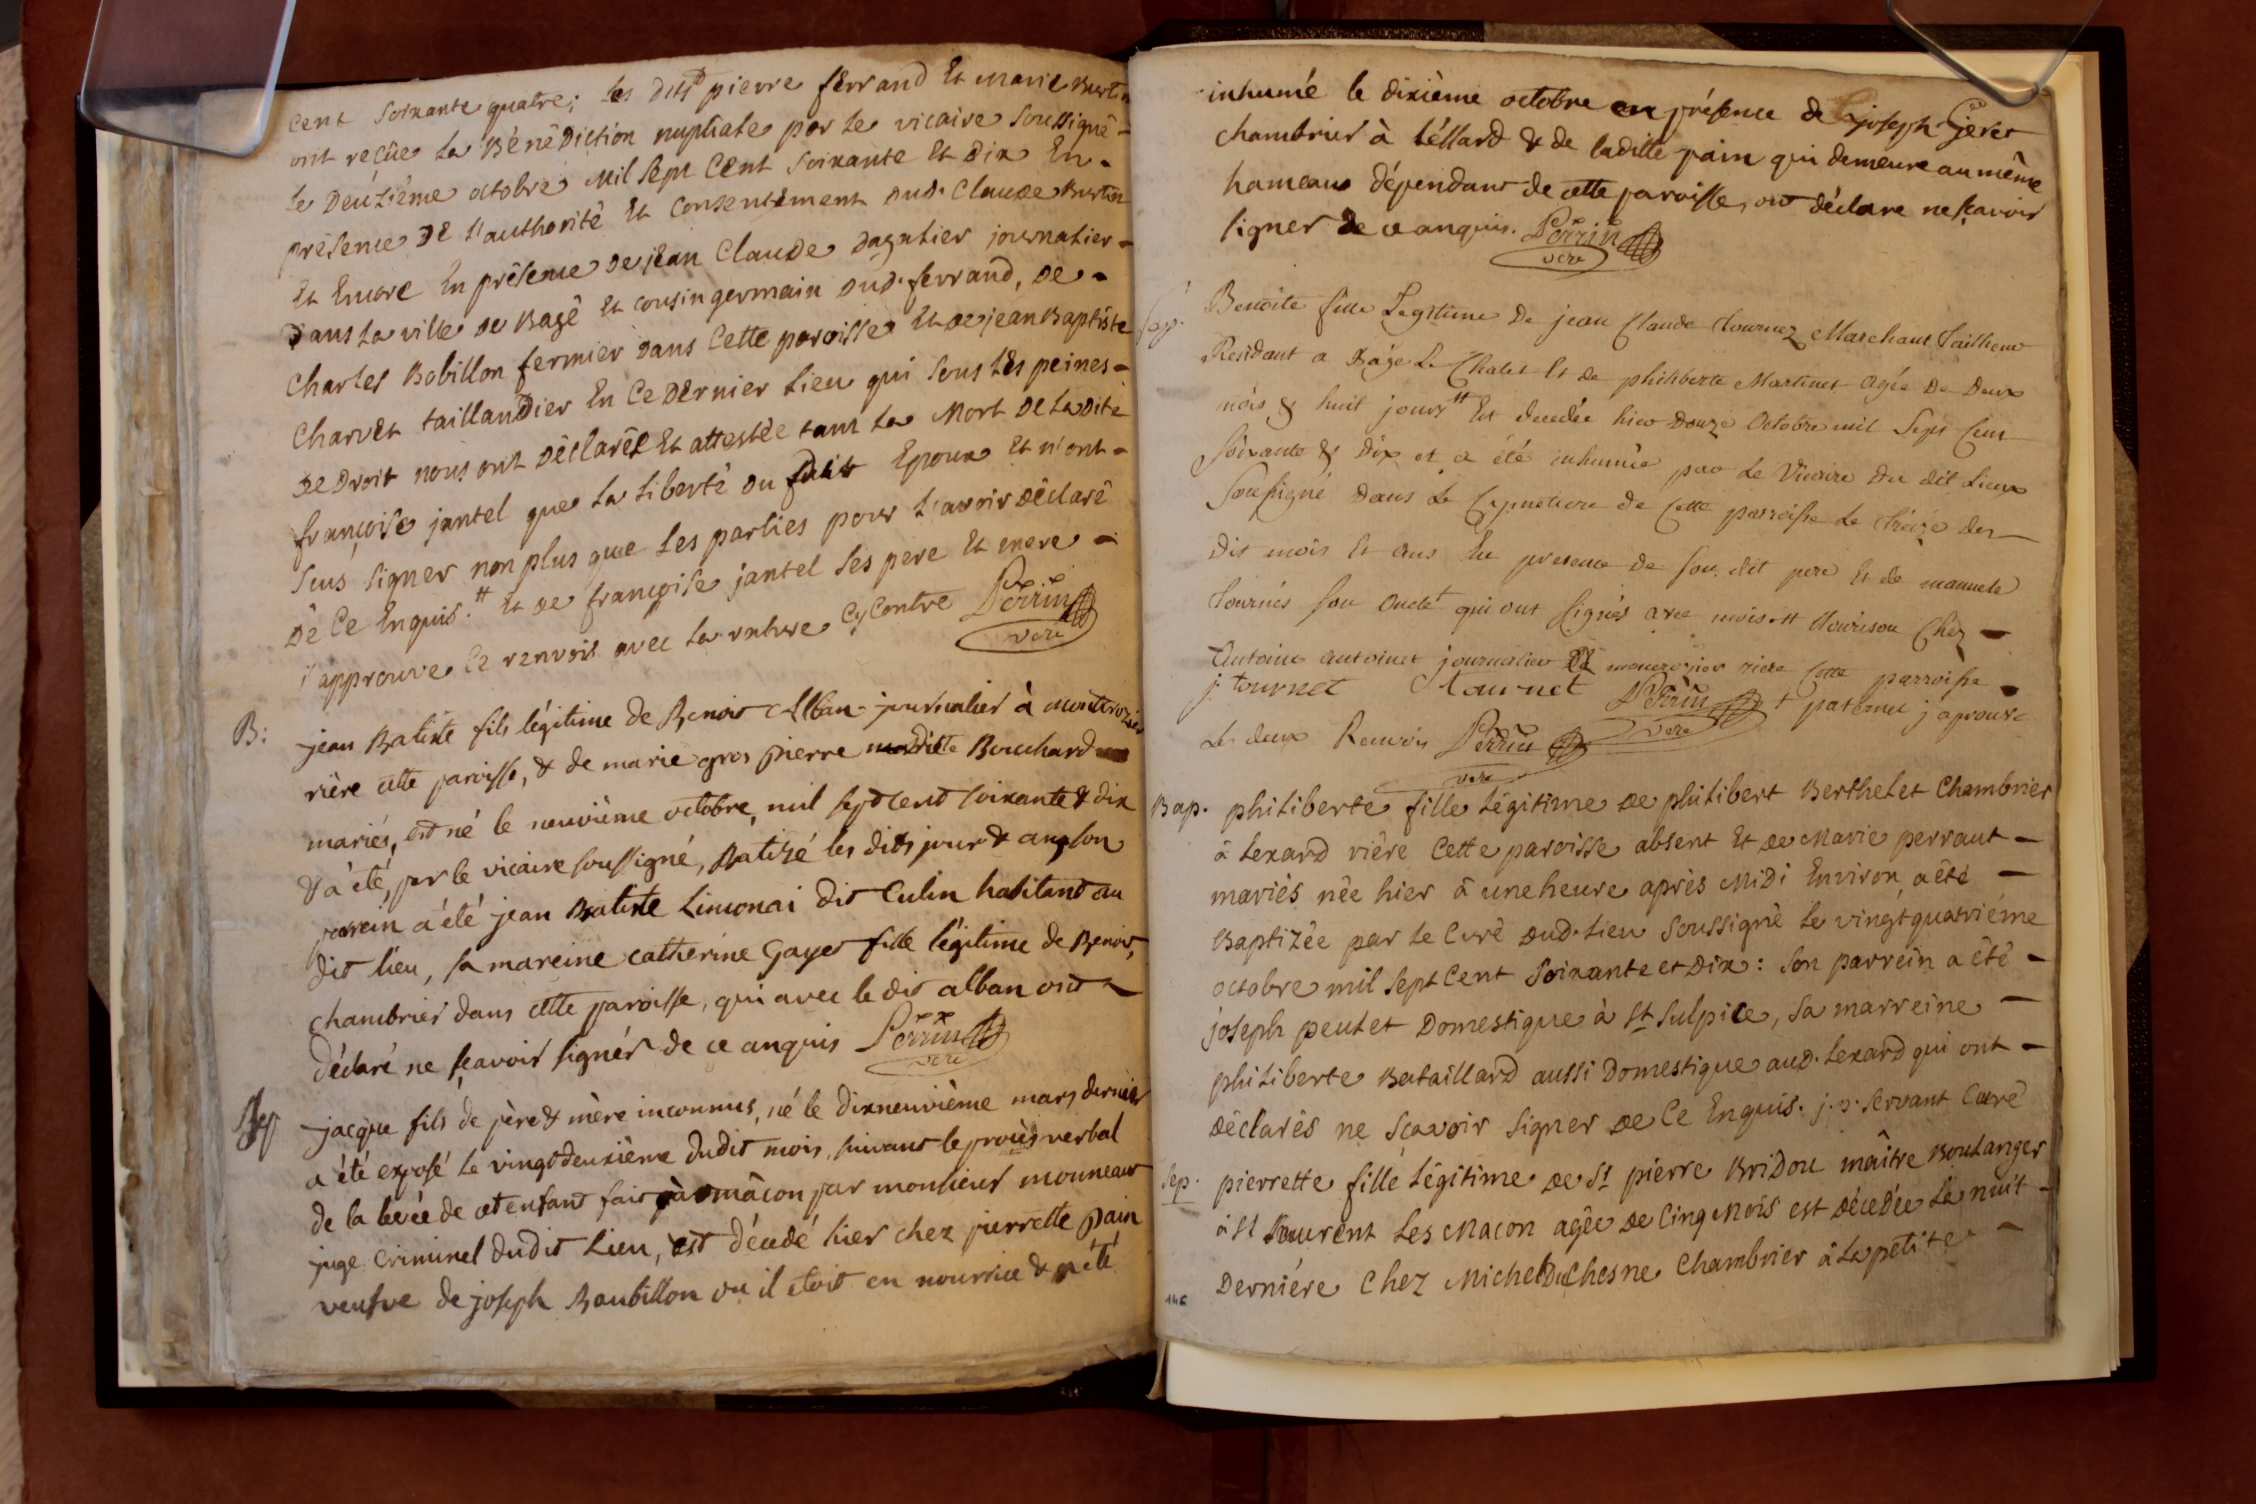 cent soixante quatre; les dits pierre ferrand et marie Burtin
ont reçue la Bénédiction nuptiale par le vicaire soussigné -
le deuzième octobre mil sept cent soixante et dix en -
présence de l'authorité et consentement dud. Claude Burtin
et encore en présence de jean Claude Dagalier journalier -
dans la ville de Bagé et cousin germain dud. ferrand, de -
charles Bobillon fermier dans cette paroisse et de jean Baptiste
Charvet taillandier en ce dernier lieu qui sous les peines -
de droit nous ont déclarée et attestée tant la mort de la dite
françoise jantel que la liberté du epoux et n'ont -
sçus signer non plus que les parties pour l'avoir déclaré
de ce enquis. # et de françoise jantel ses pere et mere -
j'approuve le renvoit avec la rature cy contre Perrin
vcre
B: jean Batiste fils légitime de Benoit Alban journalier à montrozier
rière cette paroisse, & de marie gros pierre Bouchard
mariés, est né le neuvième octobre mil sept cent soixante & dix
& a été, par le vicaire soussigné, Batizé les dits jour & an, son
parein a été jean Batiste Limonai dit Culin habitant au
dit lieu, sa mareine catherine Gayet fille légitime de Benoit,
chambrier dans cette paroisse, qui avec le dit alban ont
déclaré ne sçavoir signér de ce anquis Perrin
vcre
Sep jacque fils de père & mère inconnus, né le dixneuvième mars dernier
a été exposé le vingtdeuxième dudit mois, suivant le procès verbal
de la levée de cet enfant fait à mâcon par monsieur monneaux
juge criminel dudit lieu, est décedé hier chez pierrette pain
veufve de joseph Baubillon ou il etoit en nourrice & a été
inhumé le dixième octobre en présence de joseph jeret
chambrier à léssard & de laditte pain qui demeure au même
hameau dépendant de cette paroisse, ont déclare ne sçavoir
signer de ce anquis. Perrin
vcre
Sep. Benoite fille Legitime de jean Claude Tournez Marchant
Residant a Bagé Le Chatel et de philiberte Martinet agée de Deux
mois & huit jours # Est decedée hier Douze Octobre mil Sept Cent
soixante & Dix et a été inhumée par Le Vicaire Du dit Lieux
Soussigné dans Le Cymetiere de Cette parroisse Le treize des
dit mois et ans En presence de son dit pere et de
Tournés son Oncle† qui ont signés avec mois # Nourison Chez -
Antoine antoinet journalier a monrozier riere Cette parroisse -
j. tournet tournet Perrin † paternel j aprouve
vcre
Les deux Renvois Perrin
vcre
Bap. philiberte fille légitime de philibert Berthelet Chambrier
à Lexard rière cette paroisse absent et de Marie perraut -
mariés née hier à une heure après Midi environ, a été -
Baptizée par le Curé dud. lieu soussigné le vingt quatriéme
octobre mil sept cent soixante et dix: son parrein a été -
joseph peulet domestique à St Sulpice, sa marreine -
philiberte Bataillard aussi domestique aud. Lexard qui ont -
déclarés ne sçavoir signer de ce enquis. j. p. servant Curé
Sep. pierrette fille légitime de Sr pierre Bridou maître Boulanger
à St laurent les Macon agée de cinq mois est décedée la nuit -
derniére chez Michel Duchesne Chambrier à la petite -